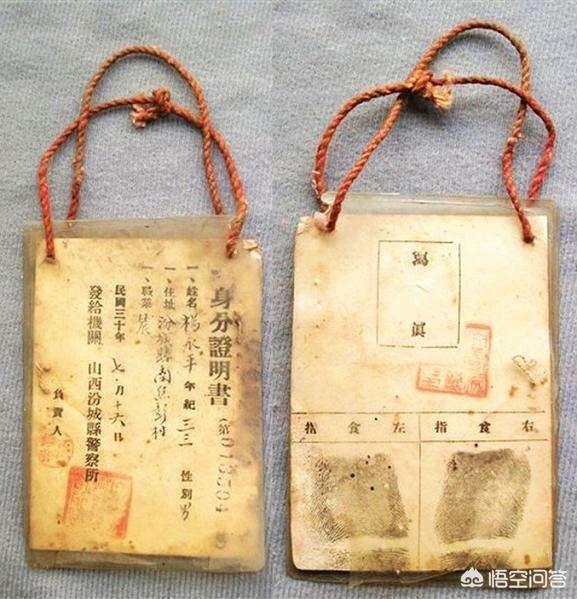 身分證明書 (第013504
一、姓名 楊永平 年紀 三三 性別 男
一、住址 汾城縣南焦彭村
一、職業 農
民國三十年 七月十六日
發給機關 山西汾城縣警察所
負責人
寫真
右食指
左食指
悟空问答